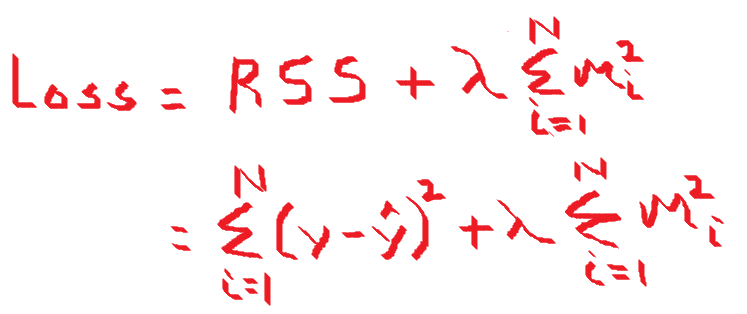 Loss = RSS + λ ∑_{i=1}^{N} m_i^2
= ∑_{i=1}^{N} (y - ŷ)^2 + λ ∑_{i=1}^{N} m_i^2